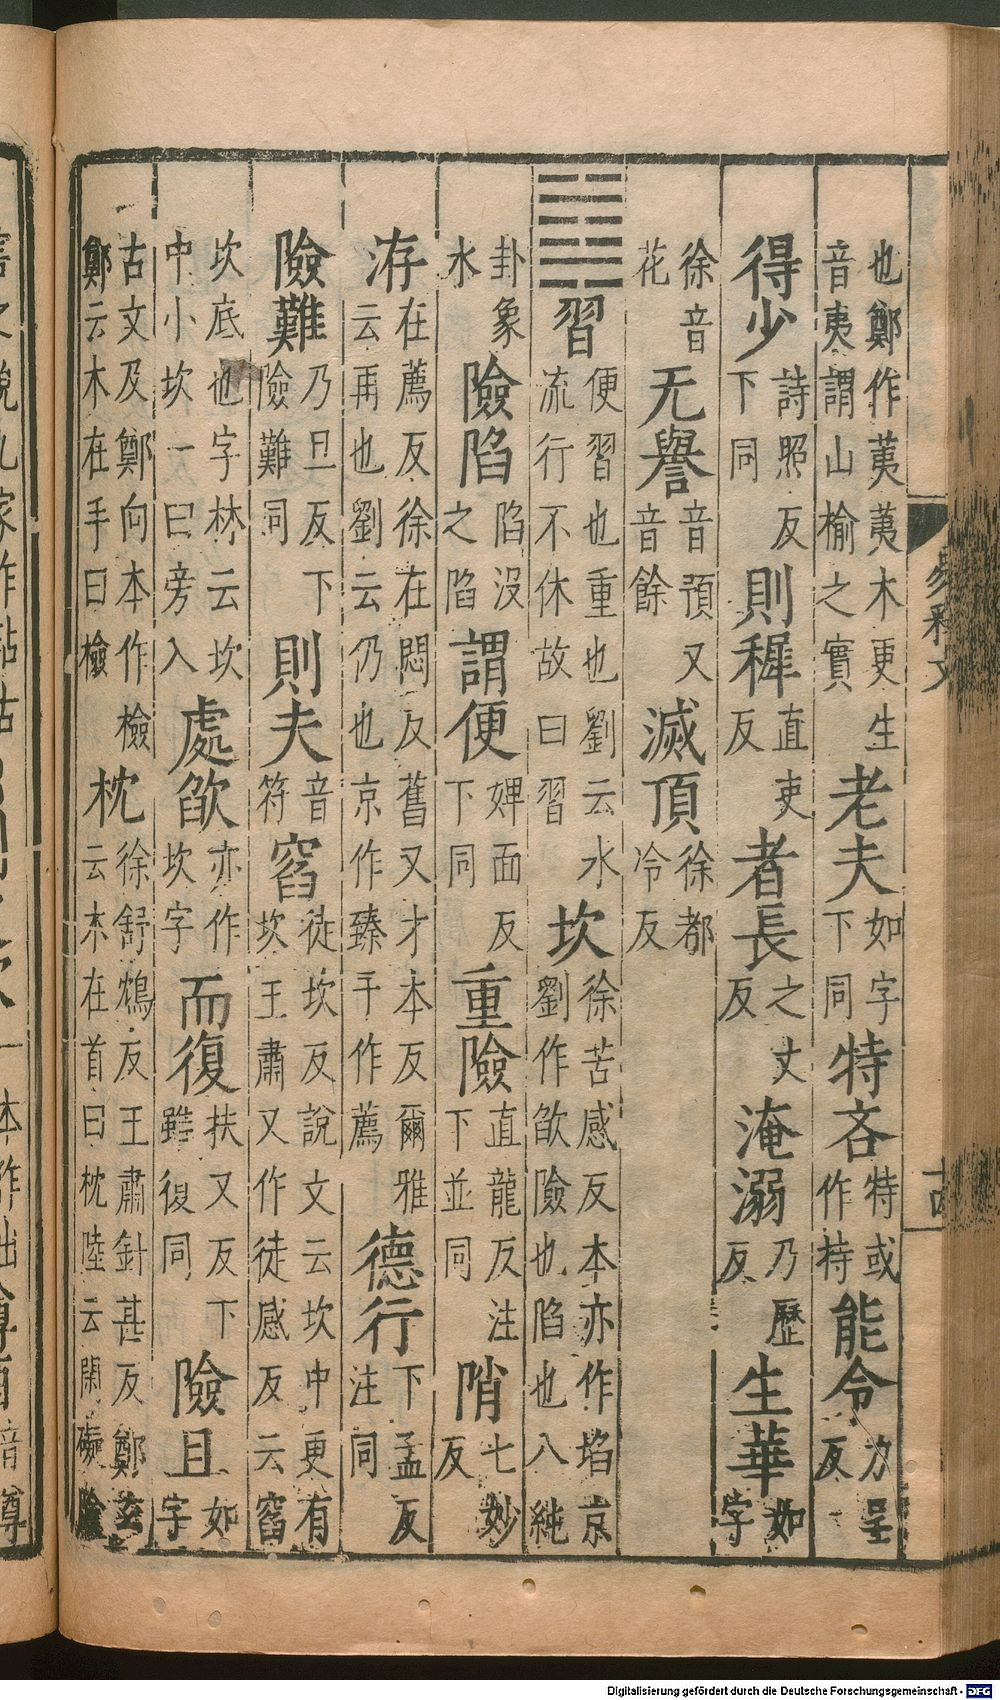 易釋文
十四
也鄭作荑荑木更生音夷謂山榆之實老夫如字下同特吝特或作持能令力呈反
得少詩照反下同則稺直吏反者長之丈反淹溺乃歷反生華如字
徐音花无譽音預又音餘滅頂徐都冷反
習便習也重也劉云水流行不休故曰習坎徐苦感反本亦作埳京劉作欿險也陷也八純
卦象水險陷陷沒之陷謂便婢面反下同重險直龍反注下並同陗七妙反
洊在薦反徐在悶反舊又才本反爾雅云再也劉云仍也京作臻干作薦德行下孟反注同
險難乃旦反下險難同則夫音符窞徒坎反說文云坎中更有坎王肅又作徒感反云窞
坎底也字林云坎中小坎一曰旁入處欿亦作坎字而復扶又反下雖復同險且如字
古文及鄭向本作檢鄭云木在手曰檢枕徐舒鴆反王肅針甚反鄭玄云木在首曰枕陸云閑礙險
Digitalisierung gefördert durch die Deutsche Forschungsgemeinschaft - DFG